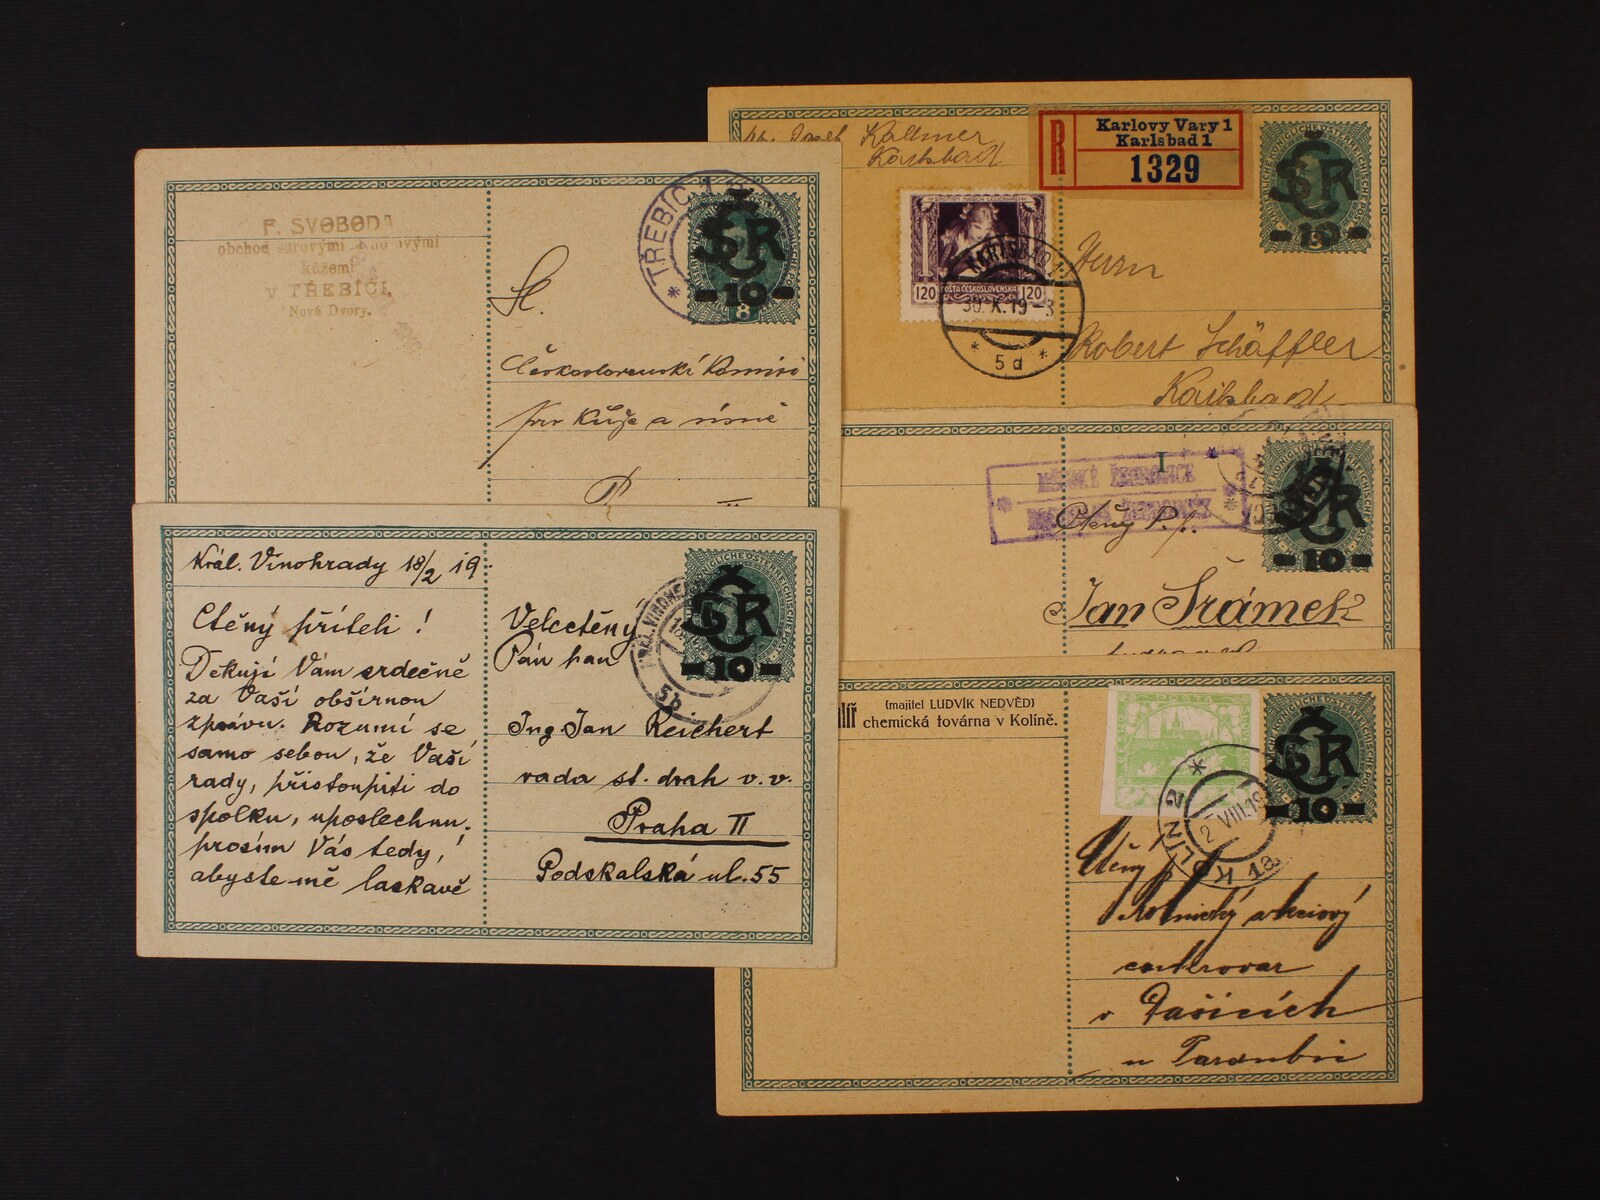 F. SVOBODA
obchod surovými
kůžemi
V TŘEBÍČI,
Nové Dvory.
TŘEBÍČ 1
ČSR
-10-
8
Sl.
Československá Komisi
pro Kůže a
P
Král. Vinohrady 18/2 19.
Ctěný příteli !
Dekuji Vám srdečně
za Vaší obšírnou
zprávu. Rozumí se
samo sebou, že Vaší
rady, přistoupiti do
spolku, uposlechnu.
prosím Vás tedy,
abyste mě laskavě
5b
ČSR
-10-
Velectěný
Pán pan
Ing. Jan Reichert
rada st. drah v. v.
Praha II
Podskalská ul. 55
Josef Kallmer
Karlsbad
R
Karlovy Vary 1
Karlsbad 1
1329
ČSR
-10-
POŠTA ČESKOSLOVENSKÁ
120 120
KARLSBAD
30. X. 19-3
* 5d *
Herrn
Robert Schäffler
Karlsbad
ČSR
-10-
Ctěný P. t.
Jan Šrámek
(majitel LUDVÍK NEDVĚD)
chemická továrna v Kolíně.
POŠTA
KOLÍN 2
2 VIII.19
1a
ČSR
-10-
Ctěný
Rolnický akciový
cukrovar
v Dašicích
u Pardubic